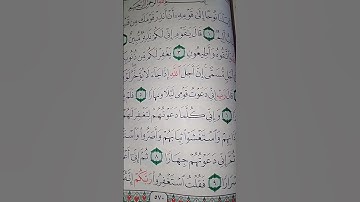 نُوحًا إِلَىٰ قَوْمِهِۦٓ أَنْ أَنذِرْ قَوْمَكَ مِن
قَالَ يَٰقَوْمِ إِنِّي لَكُمْ نَذِيرٌ مُّبِينٌ
وَٱتَّقُوهُ وَأَطِيعُونِ ٣ يَغْفِرْ لَكُم مِّن
أَجَلٍ مُّسَمًّى إِنَّ أَجَلَ ٱللَّهِ إِذَا جَآءَ لَا يُؤَخَّرُ
رَبِّ إِنِّي دَعَوْتُ قَوْمِي لَيْلًا وَنَهَارًا ٥ فَلَمْ
٦ وَإِنِّي كُلَّمَا دَعَوْتُهُمْ لِتَغْفِرَ لَهُمْ
وَٱسْتَغْشَوْا۟ ثِيَابَهُمْ وَأَصَرُّوا۟
ثُمَّ إِنِّي دَعَوْتُهُمْ جِهَارًا ٨ ثُمَّ إِنِّيٓ
٩ فَقُلْتُ ٱسْتَغْفِرُوا۟ رَبَّكُمْ إِنَّهُۥ
٥٧٠